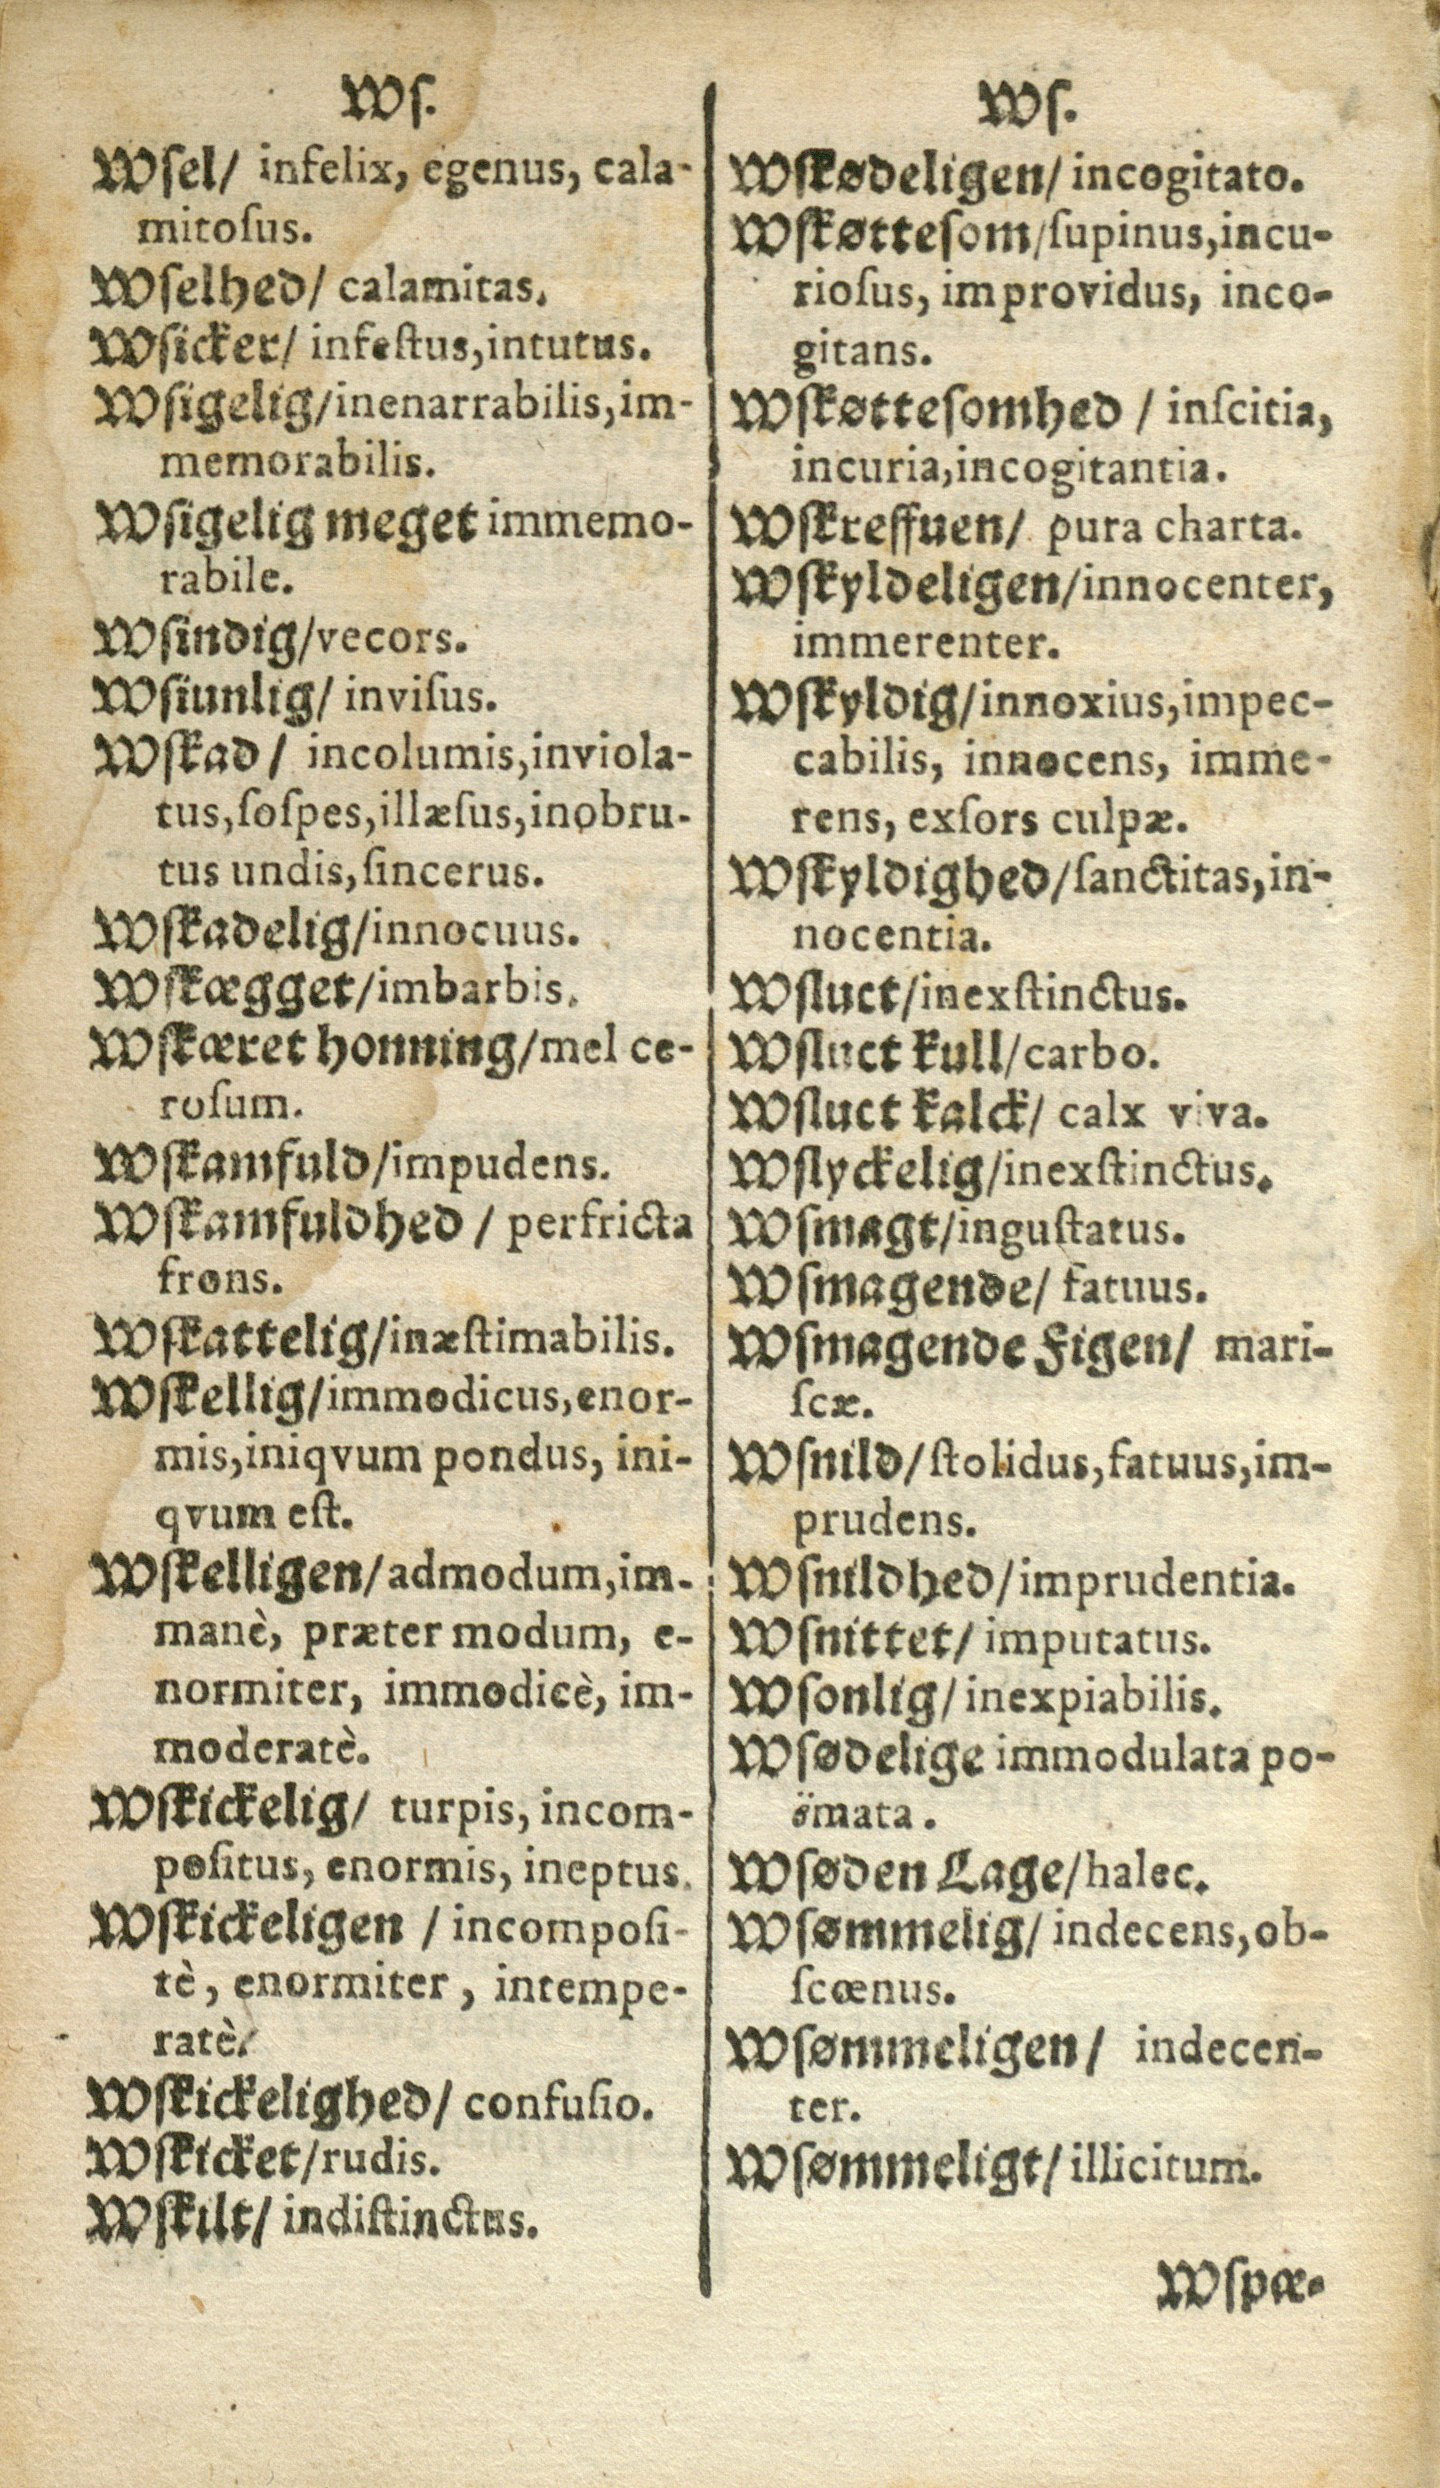 Wſ.
Wſel/ infelix, egenus, cala-
mitoſus.
Wſelhed/ calamitas.
Wſicker/ infeſtus,intutus.
Wſigelig/inenarrabilis,im-
memorabilis.
Wſigelig meget immemo-
rabile.
Wſindig/vecors.
Wſiunlig/ inviſus.
Wſkad/ incolumis,inviola-
tus,ſoſpes,illæſus,inobru-
tus undis,ſincerus.
Wſkadelig/innocuus.
Wſkægget/imbarbis.
Wſkæret honning/mel ce-
roſum.
Wſkamfuld/impudens.
Wſkamfuldhed / perfricta
frons.
Wſkattelig/inæſtimabilis.
Wſkellig/immodicus,enor-
mis,iniqvum pondus, ini-
qvum eſt.
Wſkelligen/admodum,im-
manè, præter modum, e-
normiter, immodicè, im-
moderatè.
Wſkickelig/ turpis, incom-
poſitus, enormis, ineptus.
Wſkickeligen / incompoſi-
tè, enormiter, intempe-
ratè.
Wſkickelighed/ confuſio.
Wſkicket/rudis.
Wſkilt/ indiſtinctus.
Wſ.
Wſkødeligen/ incogitato.
Wſkøtteſom/ſupinus,incu-
rioſus, improvidus, inco-
gitans.
Wſkøtteſomhed / inſcitia,
incuria,incogitantia.
Wſkreffuen/ pura charta.
Wſkyldeligen/innocenter,
immerenter.
Wſkyldig/innoxius,impec-
cabilis, innocens, imme-
rens, exſors culpæ.
Wſkyldighed/ſanctitas,in-
nocentia.
Wſluct/inexſtinctus.
Wſluct kull/carbo.
Wſluct kalck/ calx viva.
Wſlyckelig/inexſtinctus.
Wſmagt/inguſtatus.
Wſmagende/ fatuus.
Wſmagende Figen/ mari-
ſcæ.
Wſnild/ſtolidus,fatuus,im-
prudens.
Wſnildhed/imprudentia.
Wſnittet/ imputatus.
Wſonlig/ inexpiabilis.
Wſødelige immodulata po-
ëmata.
Wſøden Lage/halec.
Wſømmelig/ indecens,ob-
ſcœnus.
Wſømmeligen/ indecen-
ter.
Wſømmeligt/ illicitum.
Wſpæ-